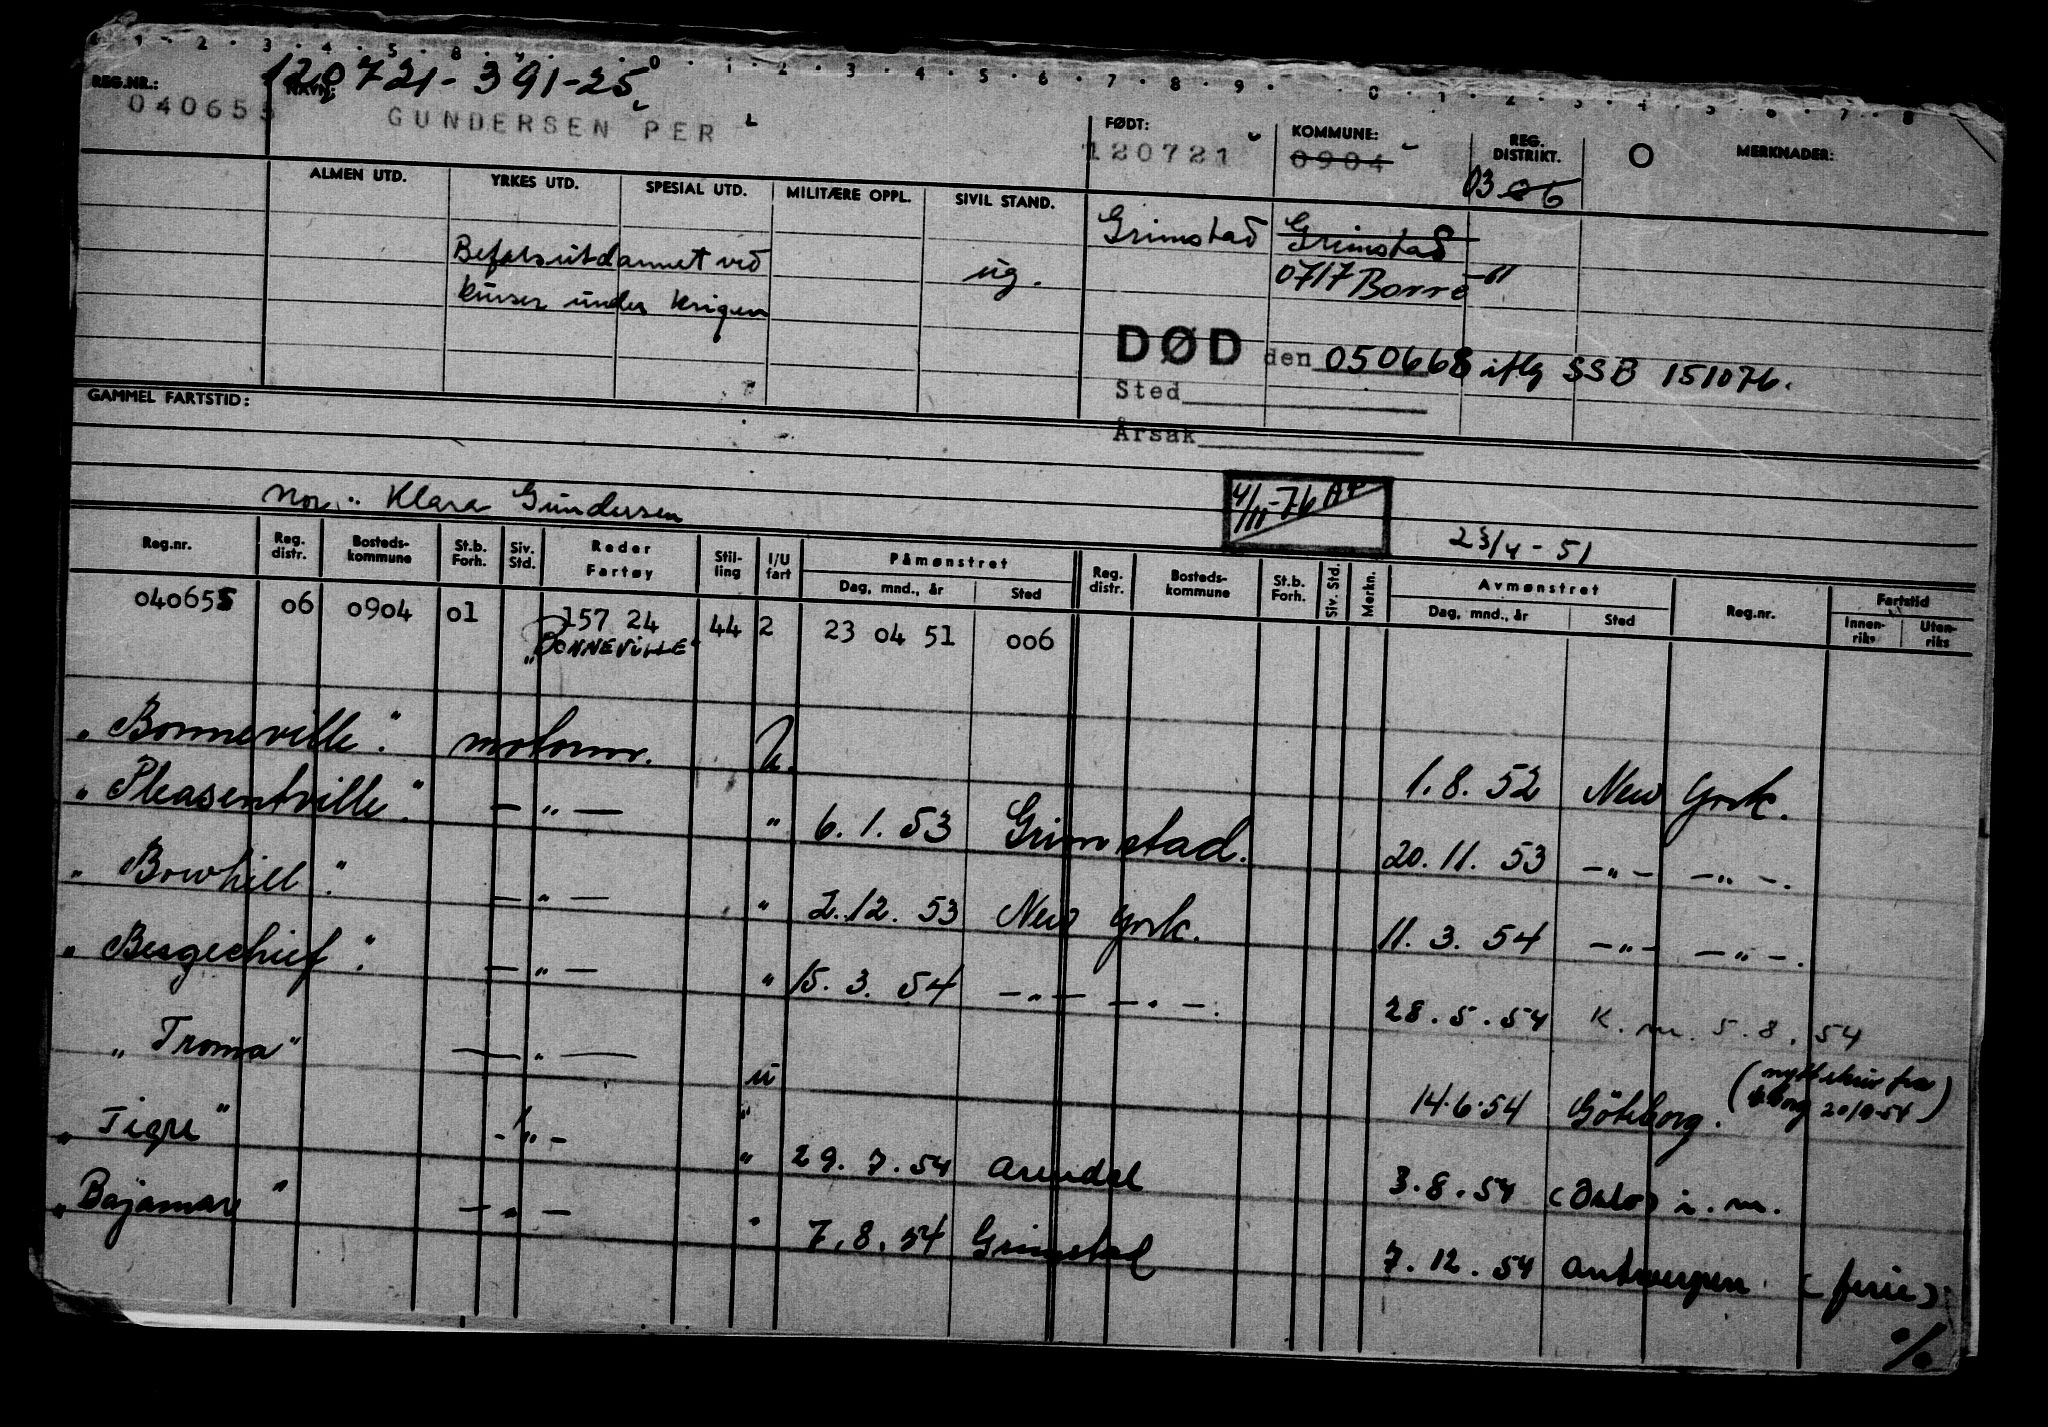 1 · 2 · 3 · 4 · 5 · 8 · 0 · 1 · 2 · 3 · 4 · 5 · 6 · 7 · 8 · 9 · 0 · 1 · 2 · 3 · 4 · 5 · 6 · 7 · 8
120721-391-25
REG.NR.: NAVN: FØDT: KOMMUNE: REG. DISTRIKT. O MERKNADER:
040655 GUNDERSEN PER 120721 0904 03 06
ALMEN UTD. YRKES UTD. SPESIAL UTD. MILITÆRE OPPL. SIVIL STAND.
Grimstad Grimstad
Befalsutdannet ved ug. 0717 Borre -61
kurser under krigen
DØD den 050668 iflg SSB 151076.
Sted
Årsak
GAMMEL FARTSTID:
4/11-76 AP
Mor: Klara Gundersen
23/4 - 51
Reg.nr. Reg. distr. Bosteds-kommune St.b. Forh. Siv. Std. Reder Fartøy Stil-ling I/U fart Påmønstret Dag, mnd., år Sted Reg. distr. Bosteds-kommune St.b. Forh. Siv. Std. Merkn. Avmønstret Dag, mnd., år Sted Reg.nr. Fartstid Innen-riks Uten-riks
040655 06 0904 01 157 24 44 2 23 04 51 006
"BONNEVILLE"
"Bonneville". motorm. U. 1.8.52 New York.
"Pleasentville". — " — " 6.1.53 Grimstad. 20.11.53 — " — — " —.
"Bowhill". — " — " 2.12.53 New York. 11.3.54 — " — — " —.
"Bergechief". — " — " 15.3.54 — " — — " —. 28.5.54 K.m. 5.8.54
"Troma" — " — u 14.6.54 Göteborg. (nytt skriv fra Gborg 20/8-54)
"Tigre" — " — " 29.7.54 Arendal 3.8.54 (Oslo) i.m.
"Bajamar" — " — " 7.8.54 Grimstad 7.12.54 Antwerpen (ferie)
%